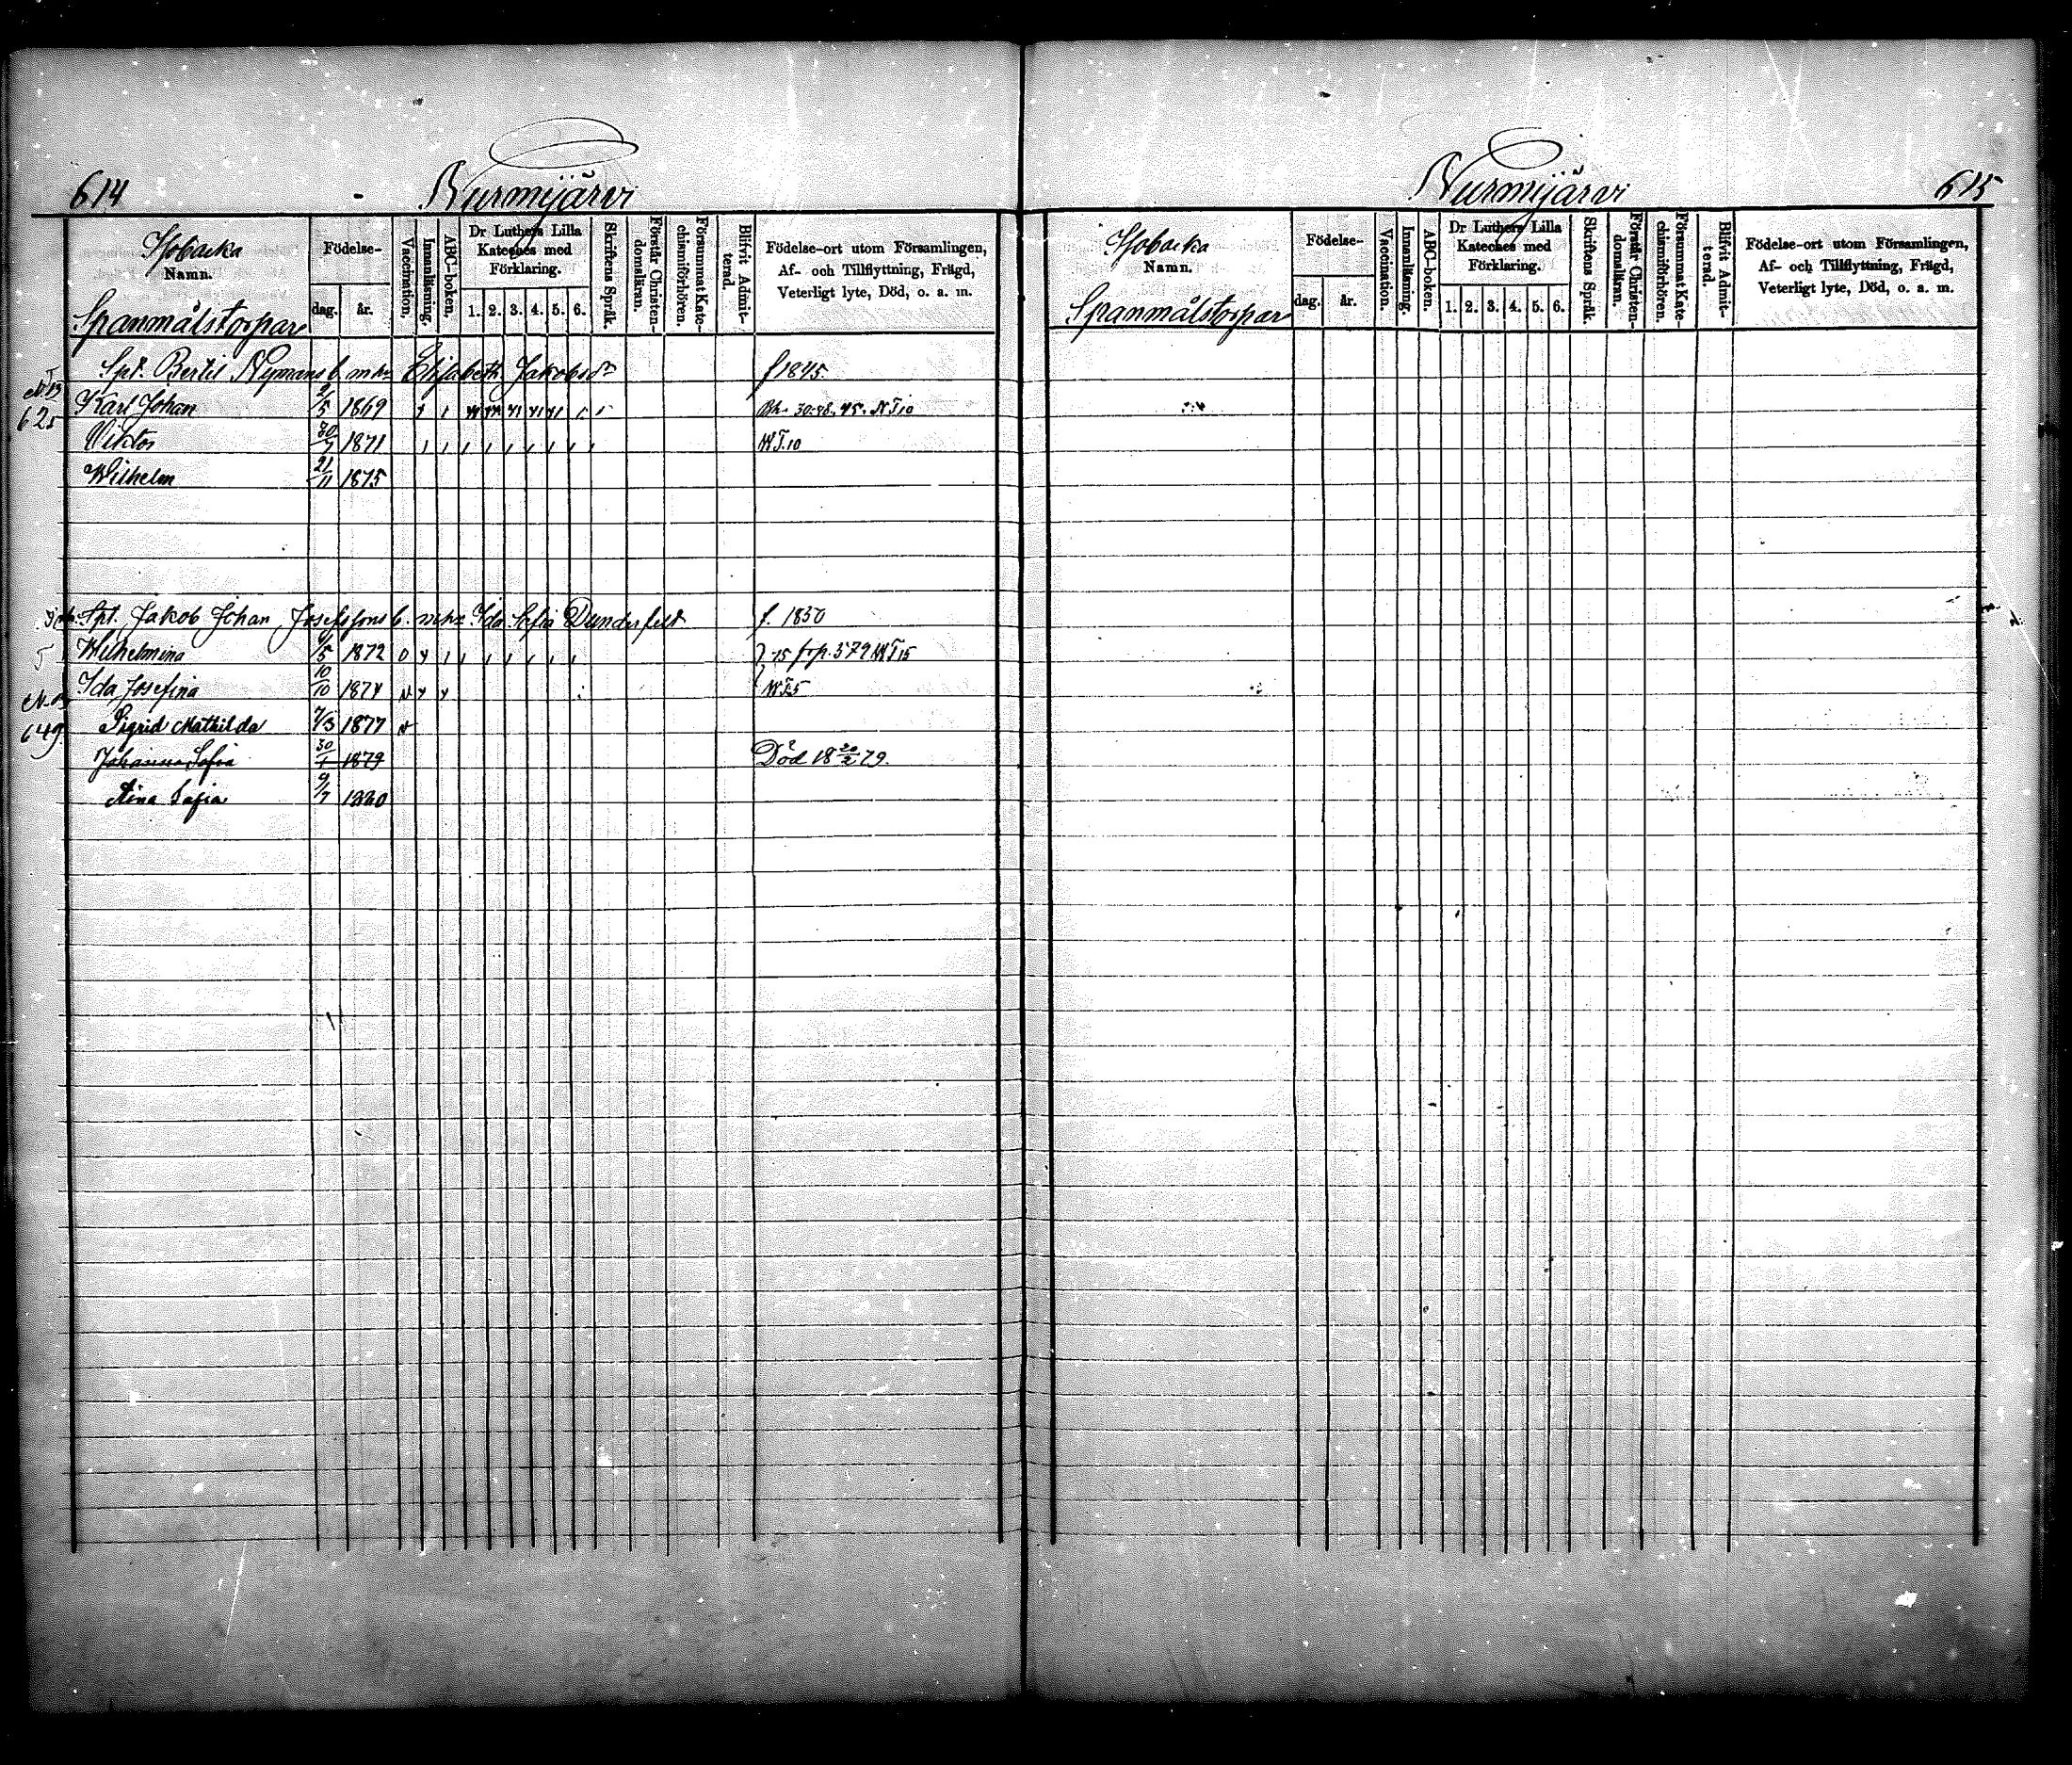 614 Nurmijärvi
Sjöbacka
Namn.
Födelse-
dag. år.
Vaccination.
Innanläsning.
ABC-boken.
Dr Luthers Lilla Kateches med Förklaring.
1. 2. 3. 4. 5. 6.
Skriftens Språk.
Förstår Christendomsläran.
Försummat Katechismiförhören.
Blifvit Admitterad.
Födelse-ort utom Församlingen,
Af- och Tillflyttning, Frägd,
Veterligt lyte, Död, o. a. m.
Spanmålstorpare
Spt. Bertil Nymans b. m. h. Elisabeth Jakobsdr f 1845
625 Karl Johan 2/5 1869 30. 48. 45. NT 10
Viktor 30/7 1871 NT. 10
Wilhelm 21/11 1875
Spt. Jakob Johan Josefsfons b. m. h. Ida Sofia Dunderfelt f. 1850
Wilhelmina 6/5 1872 -15 frp. 579 NT 15
Ida Josefina 10/10 1874
649 Sigrid Mathilda 7/3 1877
Johanna Sofia 30/1 1879 Död 18 20/2 79.
Aina Sofia 9/7 1880
Nurmijärvi 615
Sjöbacka
Namn.
Födelse-
dag. år.
Vaccination.
Innanläsning.
ABC-boken.
Dr Luthers Lilla Kateches med Förklaring.
1. 2. 3. 4. 5. 6.
Skriftens Språk.
Förstår Christendomsläran.
Försummat Katechismiförhören.
Blifvit Admitterad.
Födelse-ort utom Församlingen,
Af- och Tillflyttning, Frägd,
Veterligt lyte, Död, o. a. m.
Spanmålstorpare